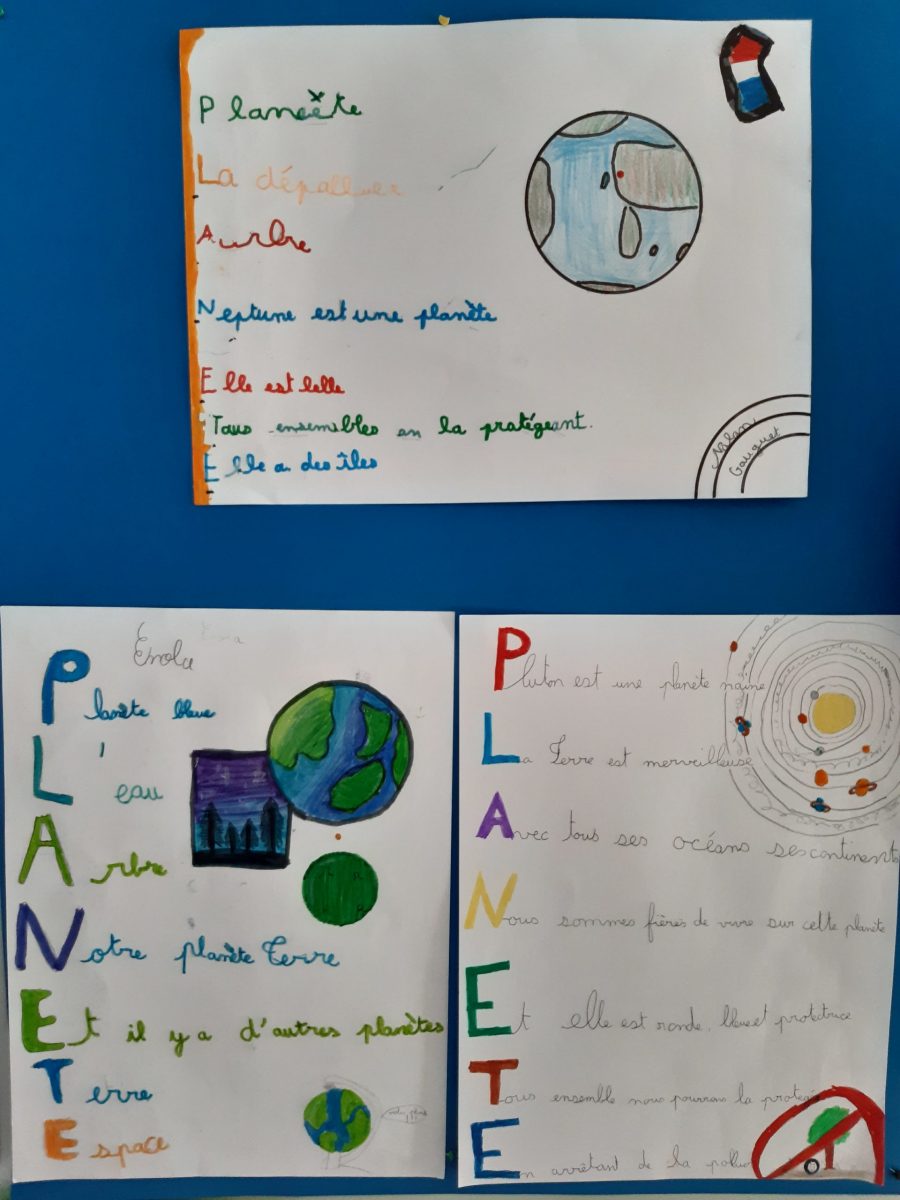 Planète
La dépolluer
Aurbre
Neptune est une planète
Elle est belle
Tous ensembles on la protégeant.
Elle a des îles
Enola
Planète bleue
L'eau
Arbre
Notre planète Terre
Et il y a d'autres planètes
Terre
Espace
Pluton est une planète naine
La Terre est merveilleuse
Avec tous ses océans ses continents
Nous sommes fières de vivre sur cette planète
Et elle est ronde, bleue et protectrice
Tous ensemble nous pourrons la protéger
En arrêtant de la